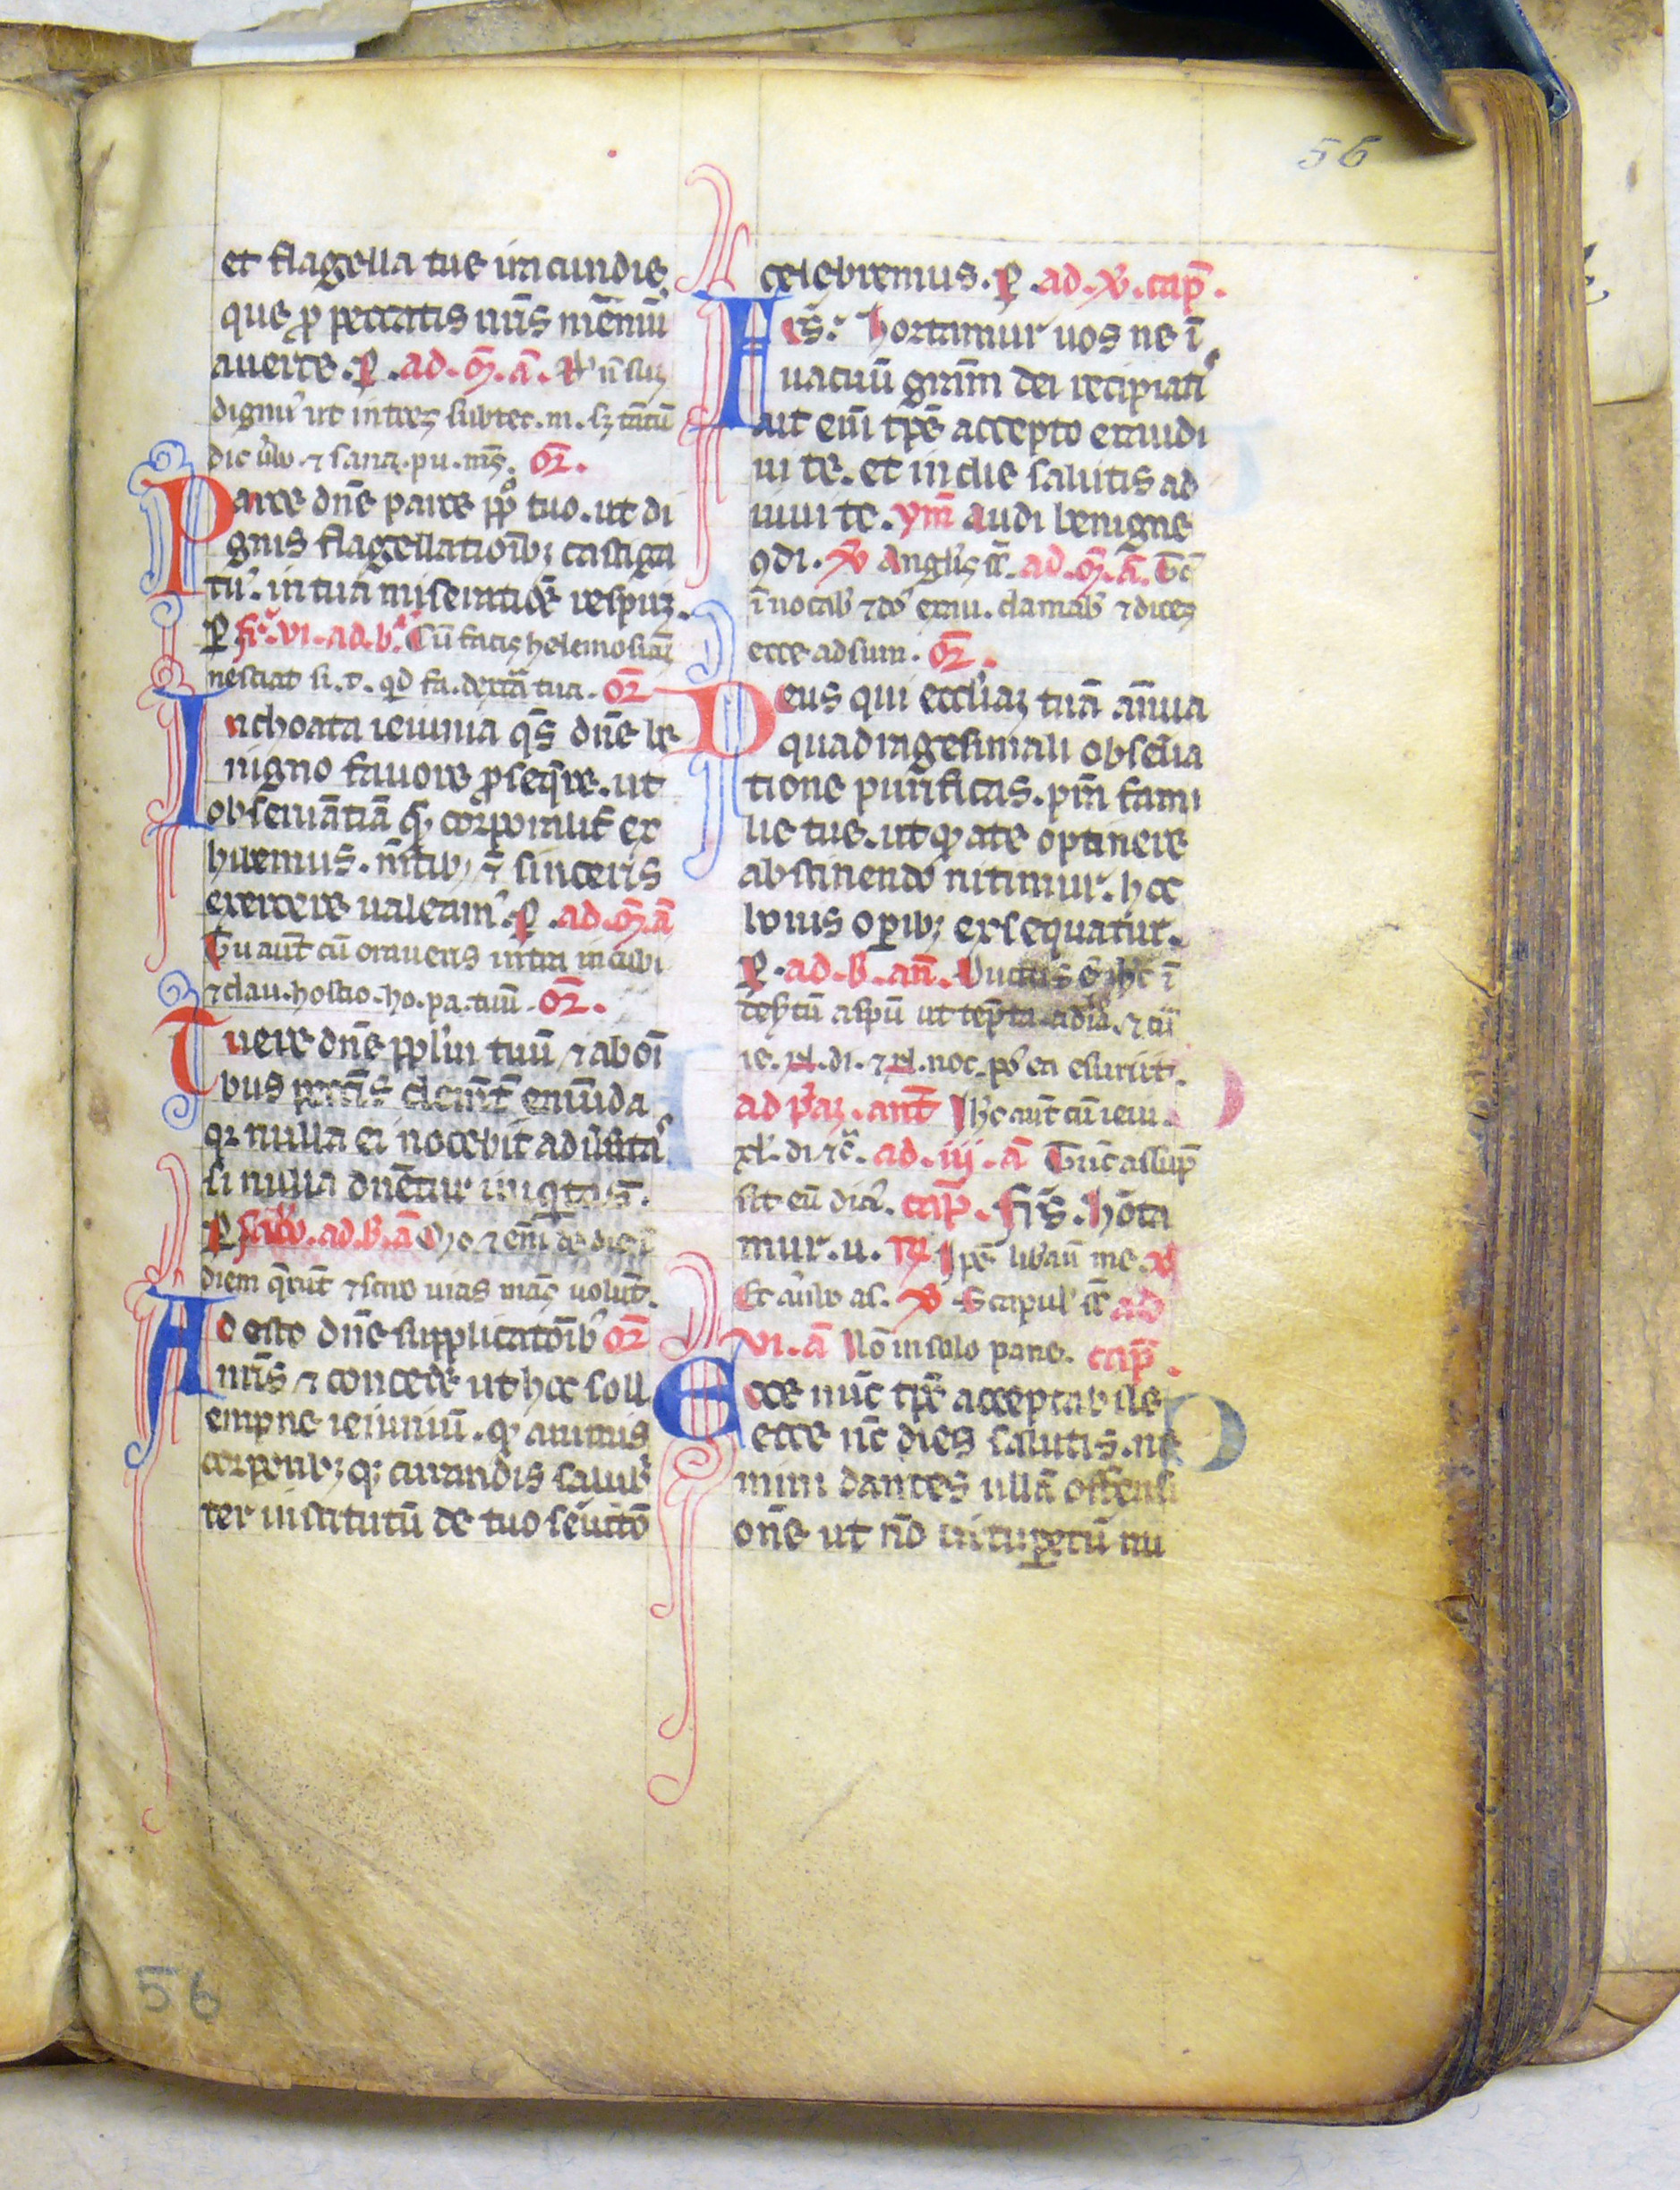 56
et flagella tue iracundie
que ꝓ peccatis nr̄is mēmur̄
auerte. ꝶ. ad. m̄. ā. Dn̄e nō sū
dignꝰ ut intres subtec. m. sꝫ tātū
dic ūbo. ⁊ sana. pu. ms̄. or̄.
Parce dn̄e parce ppl̄o tuo. ut di
gnis flagellatōibꝫ castiga
tꝰ. in tua miseratiōe respiret.
ꝶ fīa. vi. ad. b. ā Cū facis helemosinā
nesciat si. t. qd̄ fa. dextā tua. or̄
Inchoata ieiunia qs̄ dn̄e be
nigno fauore ꝓseq̄re. ut
obseruātiā qꝫ corporalit̄ ex
hibemus. mētibꝫ ⁊ sinceris
exercere ualeamꝰ. ꝶ. ad. m̄. ā
Tu aut̄ cū oraueris intra in cubi
⁊ clau. hostio. ho. pa. tuū. or̄.
Tuere dn̄e ppl̄m tuū ⁊ ab oī
bus peccīs clemēt̄ emūda
qꝛ nulla ei nocebit aduersitaˢ
si nulla dn̄etur iniqͥtas.
ꝶ sabb̄o. ad. b. ā Me ⁊ eni de die ī
diem q̄rūt ⁊ scire uias meas uolūt.
Adesto dn̄e supplicatōibꝰ or̄
nr̄is ⁊ concede ut hoc soll
empne ieiuniū. qd̄ animis
corporibꝫ qꝫ curandis salubꝛ
ter institutū de tuo seruitō
celebremus. ꝶ. ad. v̄. cap̄.
Frs̄. hortamur uos ne ī
uacuū grām dei recipiatˢ
ait eni tp̄e accepto exaudi
ui te. et in die salutis ad
iuui te. ym̄ audi benigne
ꝯdi. ℣ Angelis s̄. ad. m̄. ā. Tc̄
īuocabˢ ⁊ dn̄s exau. clamabˢ ⁊ dicet
ecce adsum. or̄.
Deus qui eccl̄iaꝫ tuā ānua
quadragesimali obserua
tione purificas. p̄sta fami
lie tue. ut qd̄ a te optinere
abstinendo nititur. hoc
bonis opibꝫ exsequatur.
ꝶ. ad. b. an̄. Ductus ē ih̄c ī
desertū a spū ut tēptaret a dia. ⁊ cū
ie. xl. di. ⁊ xl. noc. pꝰ ea esuriit.
ad p̄maꝫ. ant̄ ih̄c aut̄ cū ieiu.
xl. di ⁊c̄. ad. iij. ā Tūc assūp
sit eū diaꝰ. cap̄. Frs̄. horta
mur. u. ꝶ Ip̄e liberauit me. ℣
Et a ūbo as. ℣ Scapul s̄ ad
vi. ā Nō in solo pane. cap̄.
Ecce nūc tp̄s acceptabile
ecce nc̄ dies salutis. ne
mini dantes ullā offensi
onē ut nō uituperetur mi
56